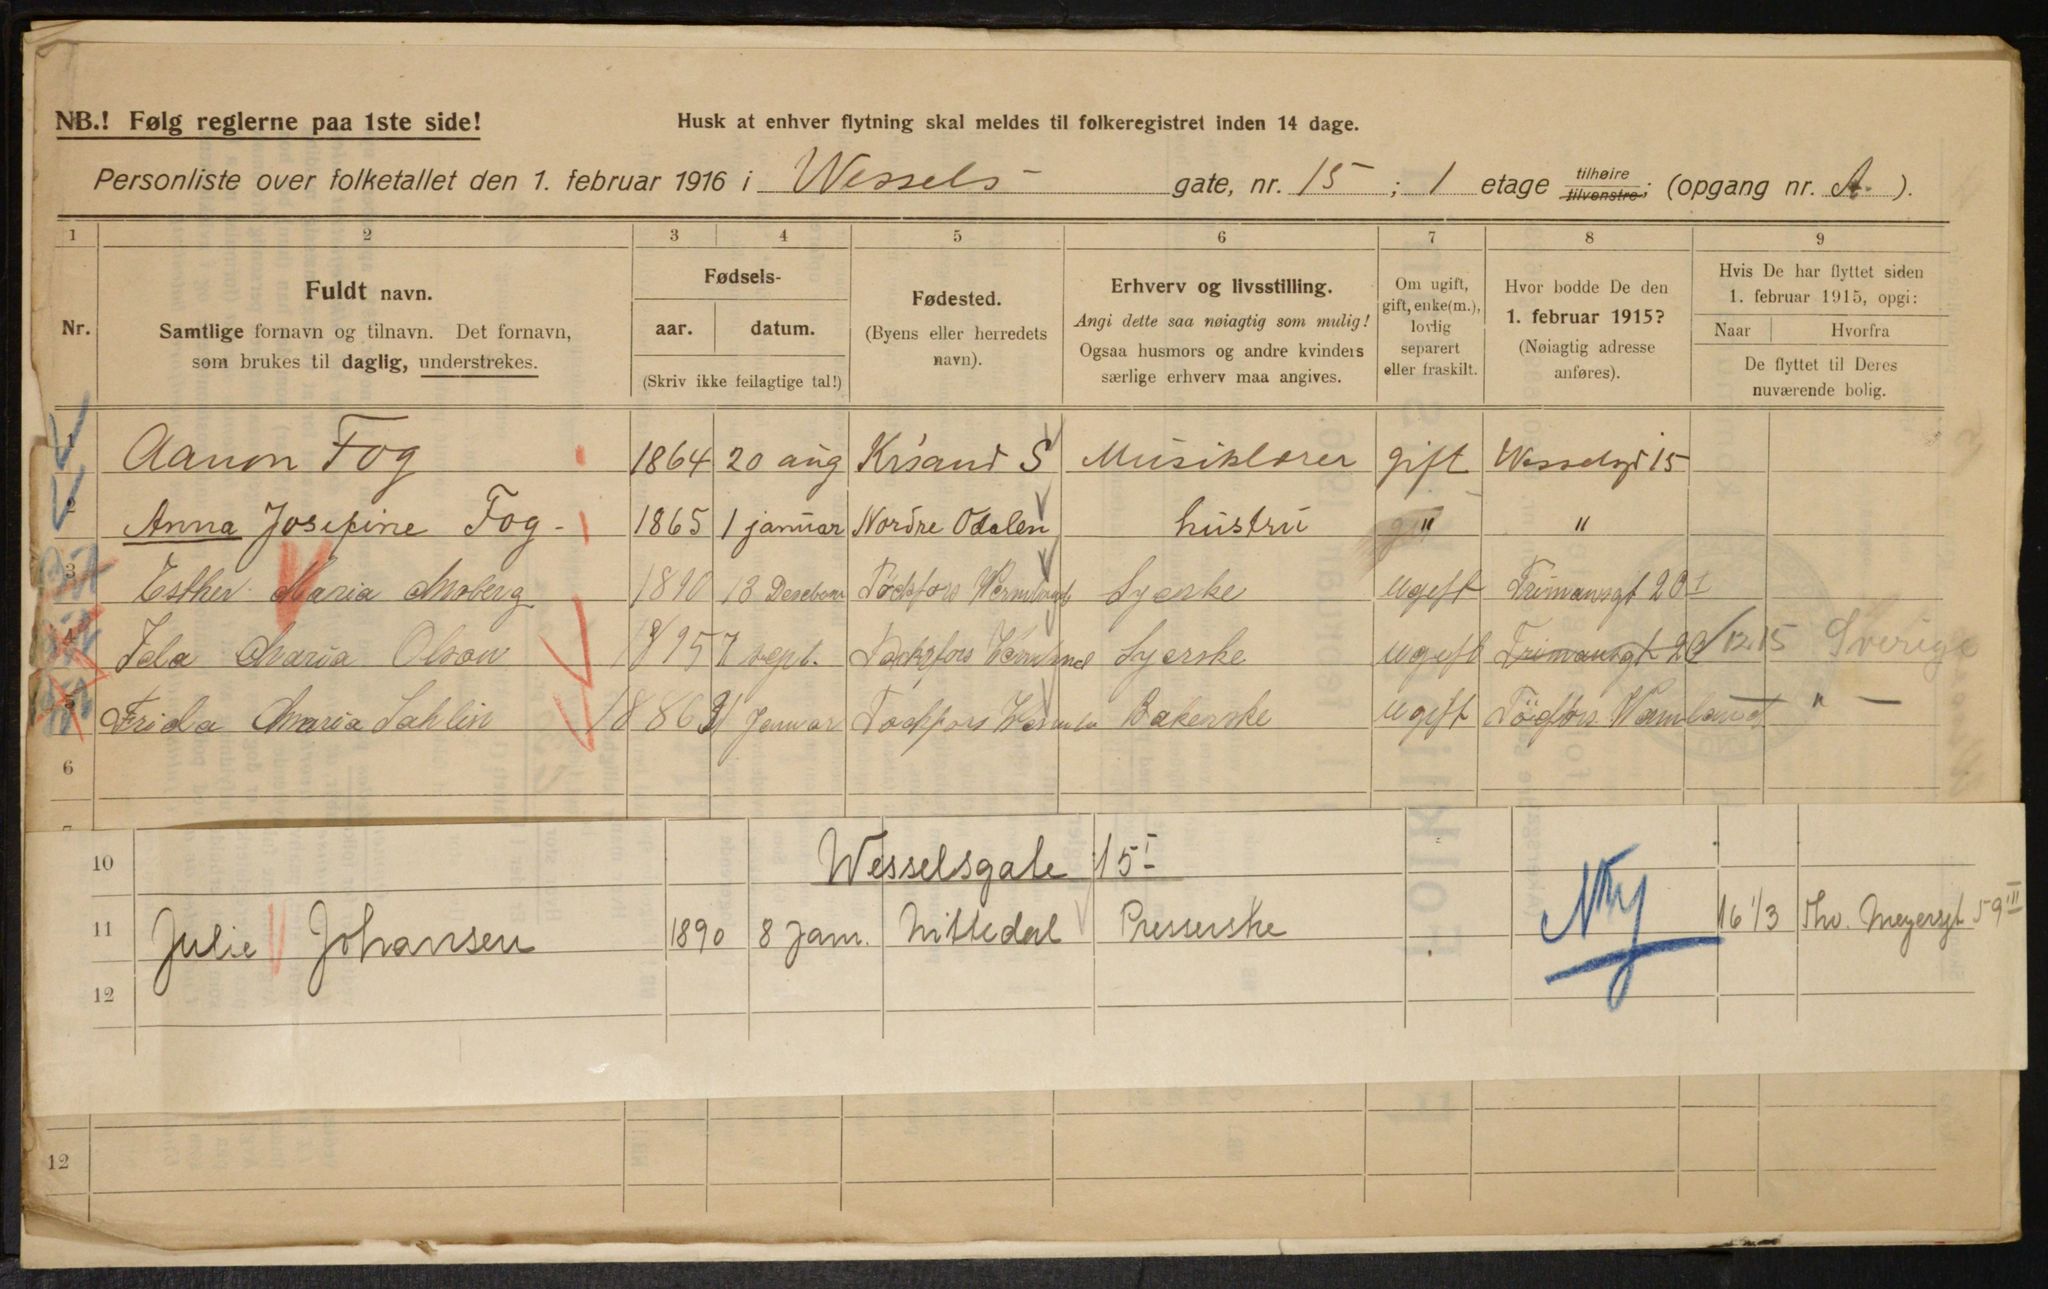 NB.! Følg reglerne paa 1ste side!
Husk at enhver flytning skal meldes til folkeregistret inden 14 dage.
Personliste over folketallet den 1. februar 1916 i Wessels- gate, nr. 15 ; 1 etage tilhøire tilvenstre; (opgang nr. A. ).
1 2 3 4 5 6 7 8 9
Nr.
Fuldt navn.
Samtlige fornavn og tilnavn. Det fornavn,
som brukes til daglig, understrekes.
Fødsels-
aar. datum.
(Skriv ikke feilagtige tal!)
Fødested.
(Byens eller herredets
navn).
Erhverv og livsstilling.
Angi dette saa nøiagtig som mulig!
Ogsaa husmors og andre kvinders
særlige erhverv maa angives.
Om ugift,
gift, enke(m.),
lovlig
separert
eller fraskilt.
Hvor bodde De den
1. februar 1915?
(Nøiagtig adresse
anføres).
Hvis De har flyttet siden
1. februar 1915, opgi:
Naar Hvorfra
De flyttet til Deres
nuværende bolig.
1 Aanon Fog 1864 20 aug Krsand S Musiklærer gift Wesselsgt 15
2 Anna Josefine Fog - 1865 1 januar Nordre Odalen hustru " "
3 Esther Maria Moberg 1890 13 Töckfors Wermland Syerske ugift 20 I
4 Ida Maria Olson 1895 7 sept. Töckfors Syerske ugift 12.15 Sverige
5 Frida Maria Sahlin 1886 Januar Töckfors Bakerske ugift Töckfors Wermland " —
6
10 Wesselsgate 15 I
11 Julie Johansen 1890 8 Jan. Nittedal Presserske Ny 16 1/3 Thv. Meyersgt 59 III
12
12